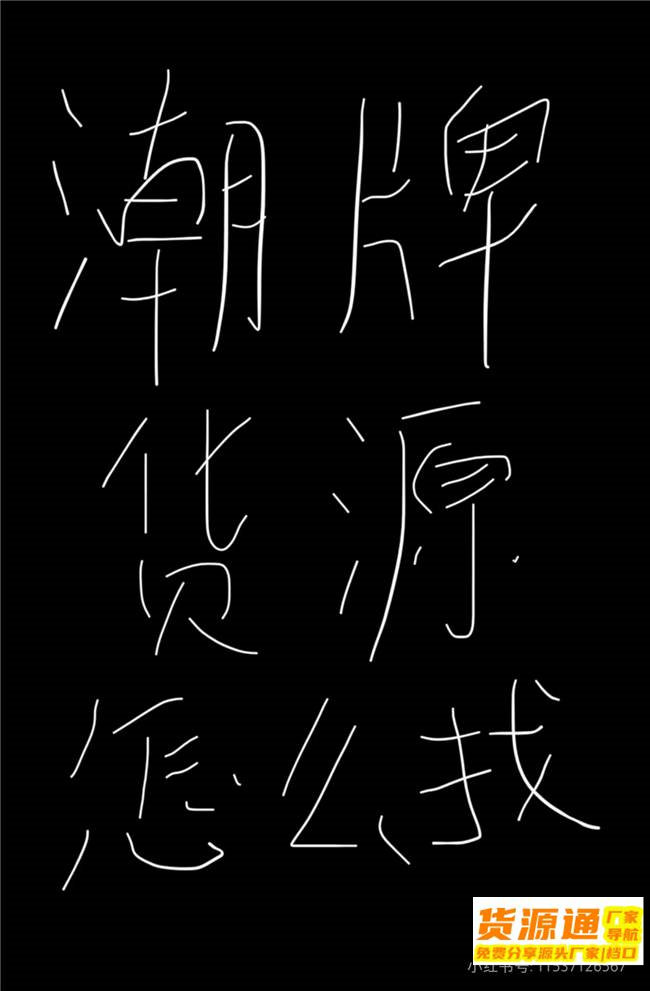 潮牌
货源
怎么找
货源通
厂家
导航
免费分享源头厂家|档口
小红书号: